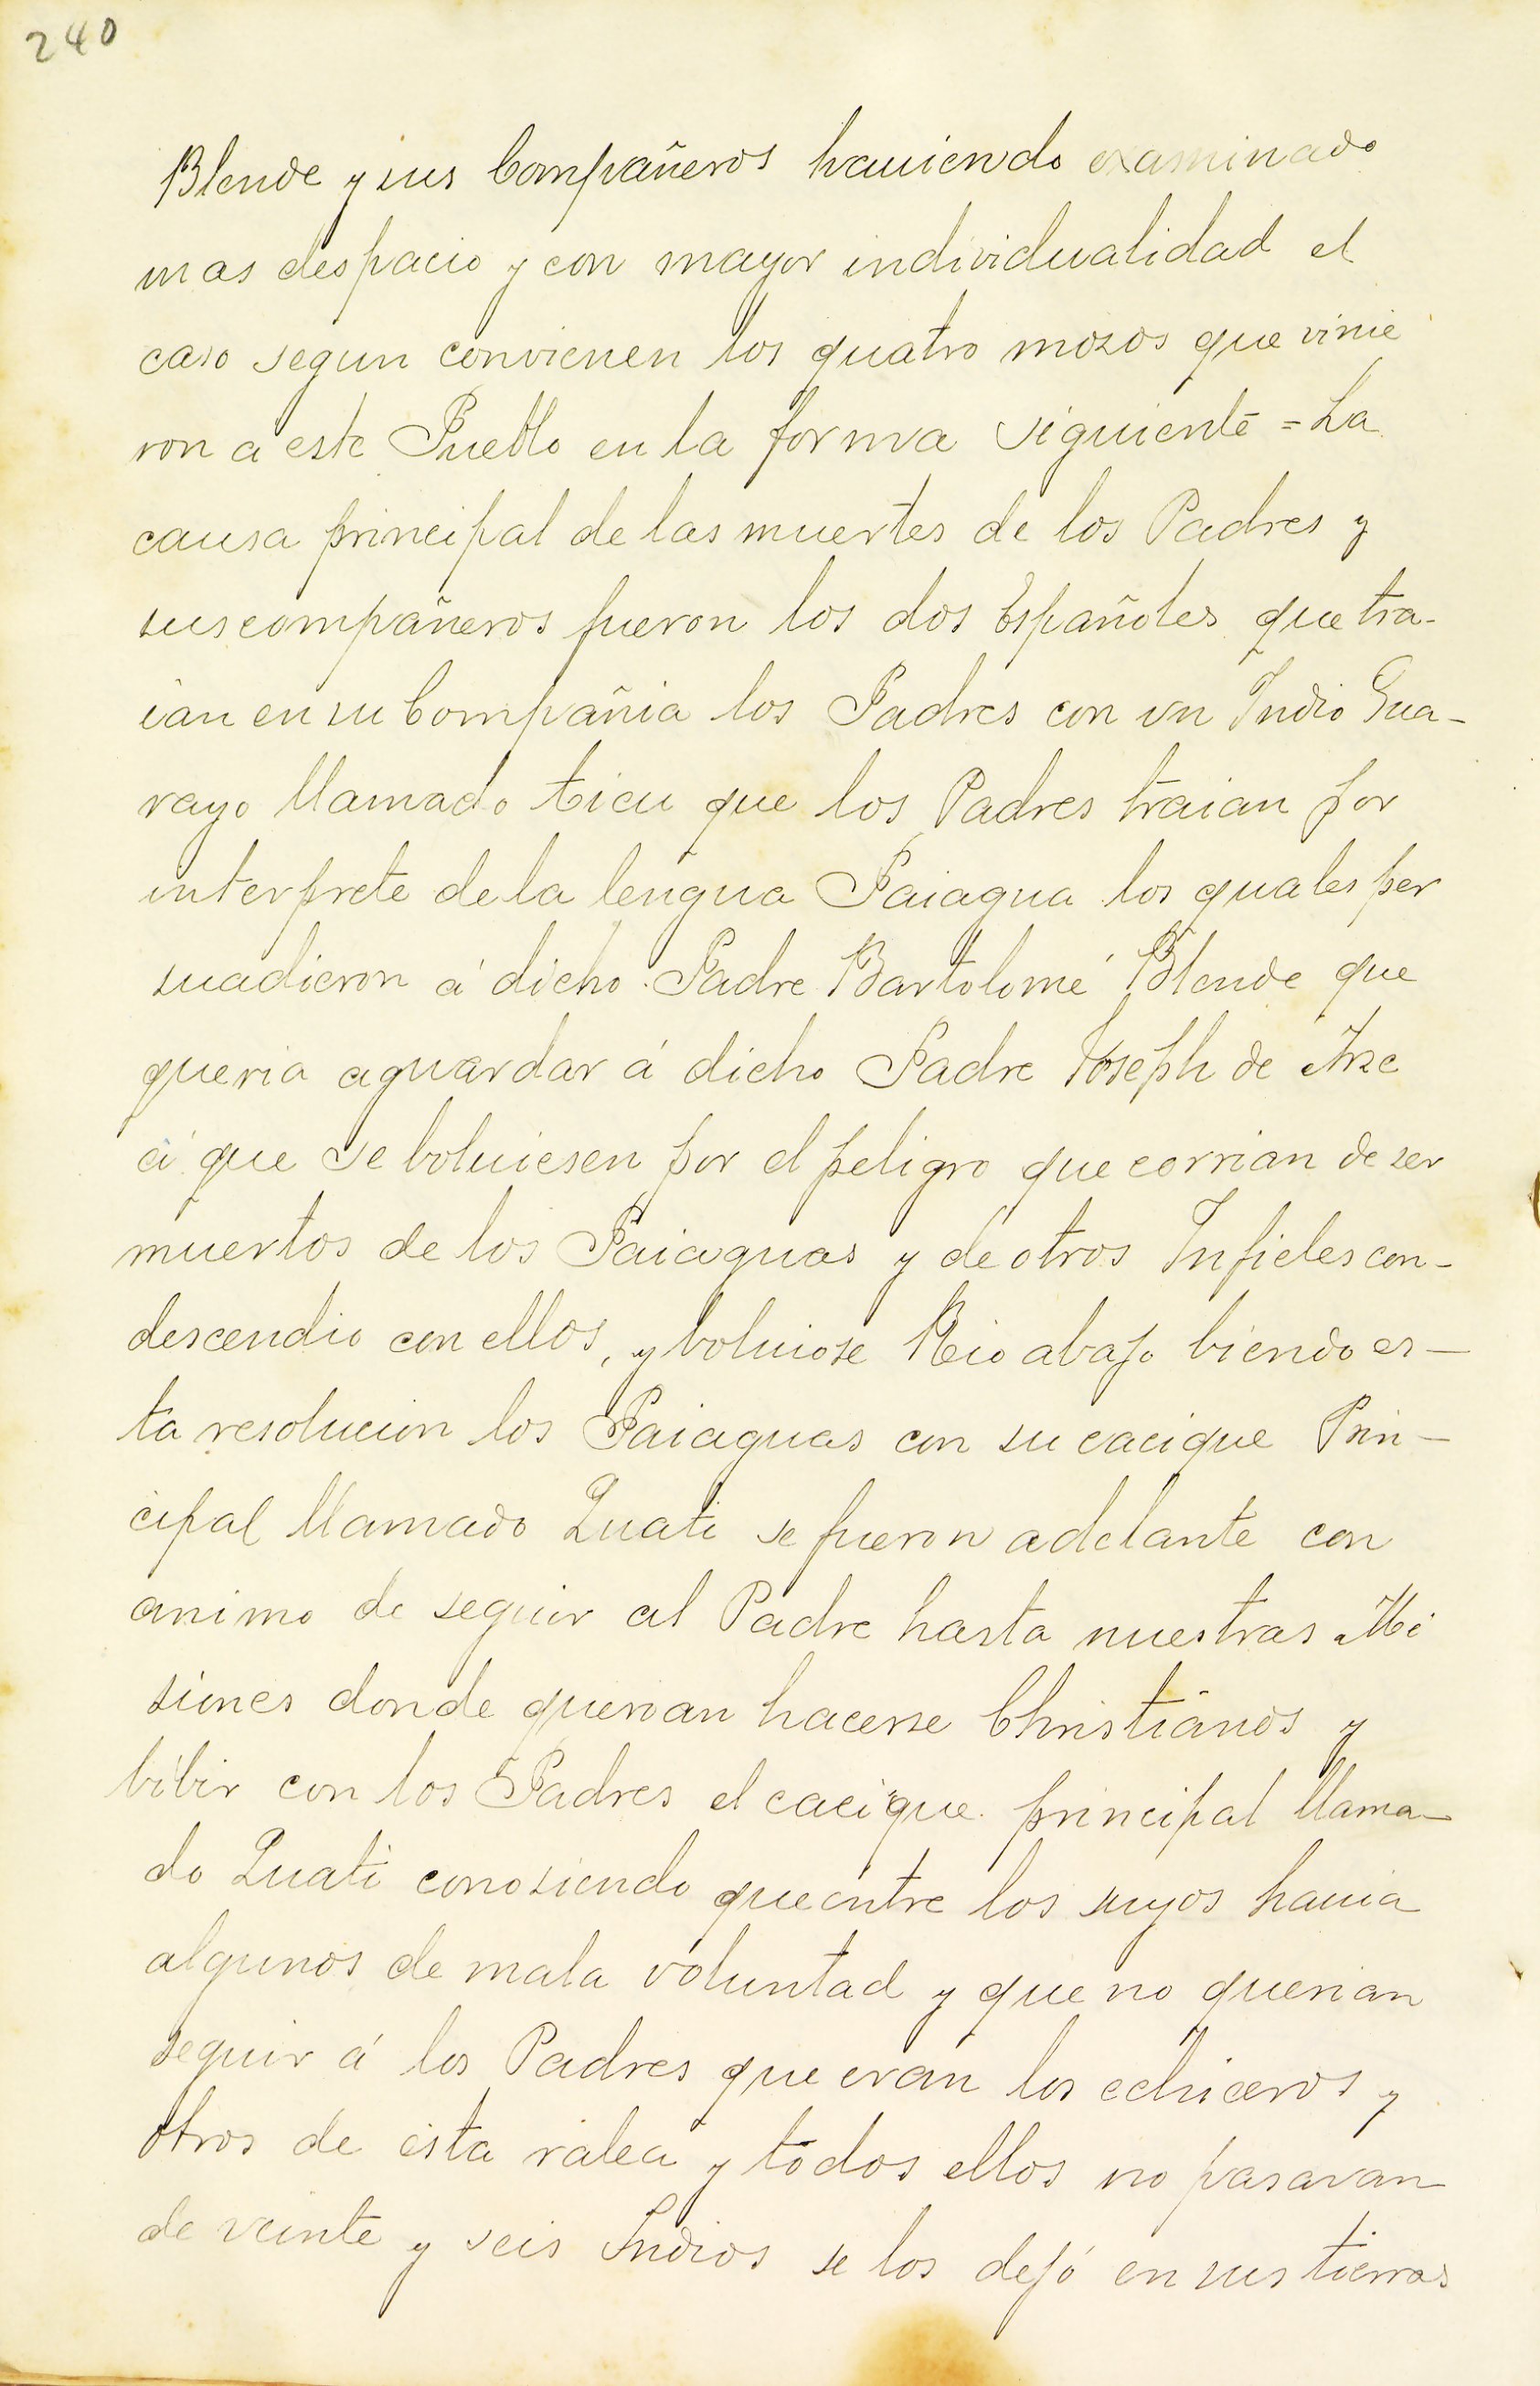 240
Blende y sus Compañeros hauiendo examinado
mas despacio y con mayor individualidad el
caso segun convienen los quatro mosos que vinie
ron a este Pueblo en la forma siguiente = La
causa principal de las muertes de los Padres y
sus compañeros fueron los dos Españoles que tra-
ian en su Compañia los Padres con un Indio Gua-
rayo llamado ticu que los Padres traian por
interprete de la lengua Paiagua los quales per
suadieron á dicho Padre Bartolomé Blende que
queria aguardar á dicho Padre Joseph de Arze
á que se boluiesen por el peligro que corrian de ser
muertos de los Paiaguas y de otros Infieles con-
descendio con ellos, y boluiose Rio abajo biendo es-
ta resolucion los Paiaguas con su cacique Prin-
cipal llamado Quati se fueron adelante con
animo de seguir al Padre hasta nuestras Mi
siones donde querian hacerse Christianos y
bibir con los Padres el cacique principal llama-
do Quati conosiendo que entre los suyos hauia
algunos de mala voluntad y que no querian
seguir á los Padres que eran los echiceros y
otros de esta ralea y todos ellos no pasavan
de veinte y seis Indios se los dejó en sus tierras